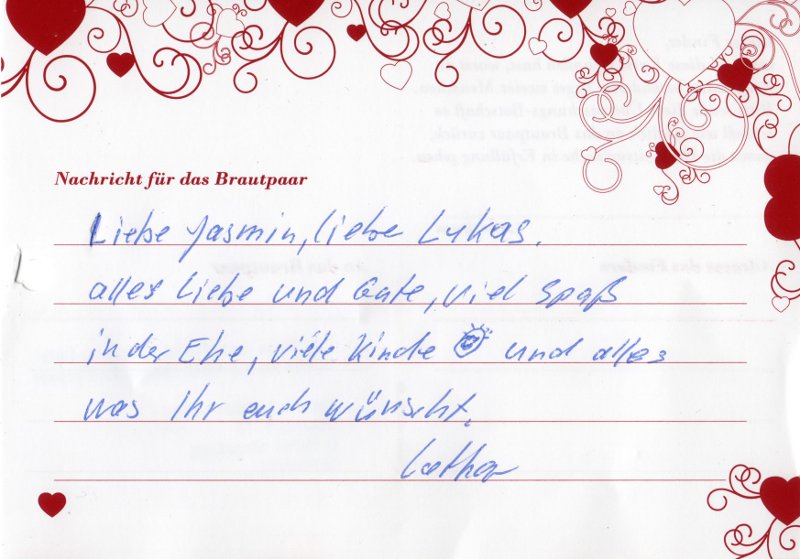 Nachricht für das Brautpaar
Liebe Jasmin, liebe Lukas.
alles Liebe und Gute, viel Spaß
in der Ehe, viele Kinde und alles
was Ihr euch wünscht.
Lothar